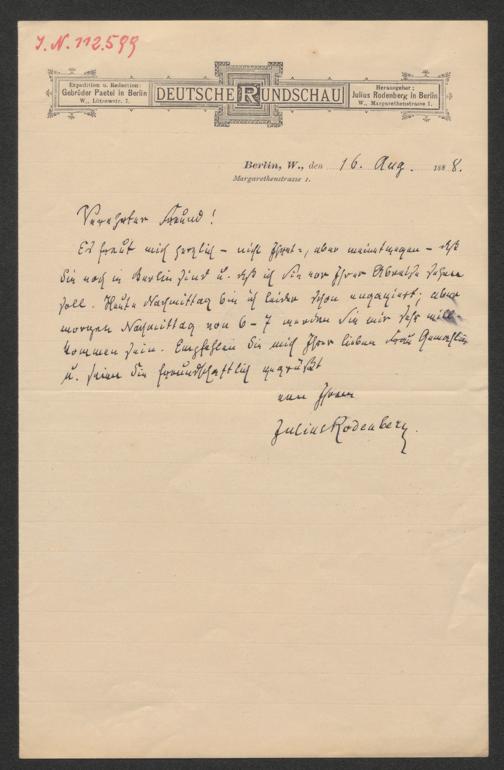 J. N. 112.599
Expedition u. Redaction
Gebrüder Paetel in Berlin
W., Lützowstr. 7.
DEUTSCHE RUNDSCHAU
Herausgeber:
Julius Rodenberg in Berlin
W., Margarethenstrasse 1.
Berlin, W., den 16. Aug. 1888.
Margarethenstrasse 1.
Verehrter Freund!
Es freut mich herzlich – nicht Ihret-, aber meinetwegen – daß
Sie noch in Berlin sind u. daß ich Sie vor Ihrer Abreise sehen
soll. Heute Nachmittag bin ich leider schon engagiert; aber
morgen Nachmittag von 6–7 werden Sie mir sehr will-
kommen sein. Empfehlen Sie mich Ihrer lieben Frau Gemahlin
u. seien Sie freundschaftlich gegrüßt
von Ihrem
Julius Rodenberg.